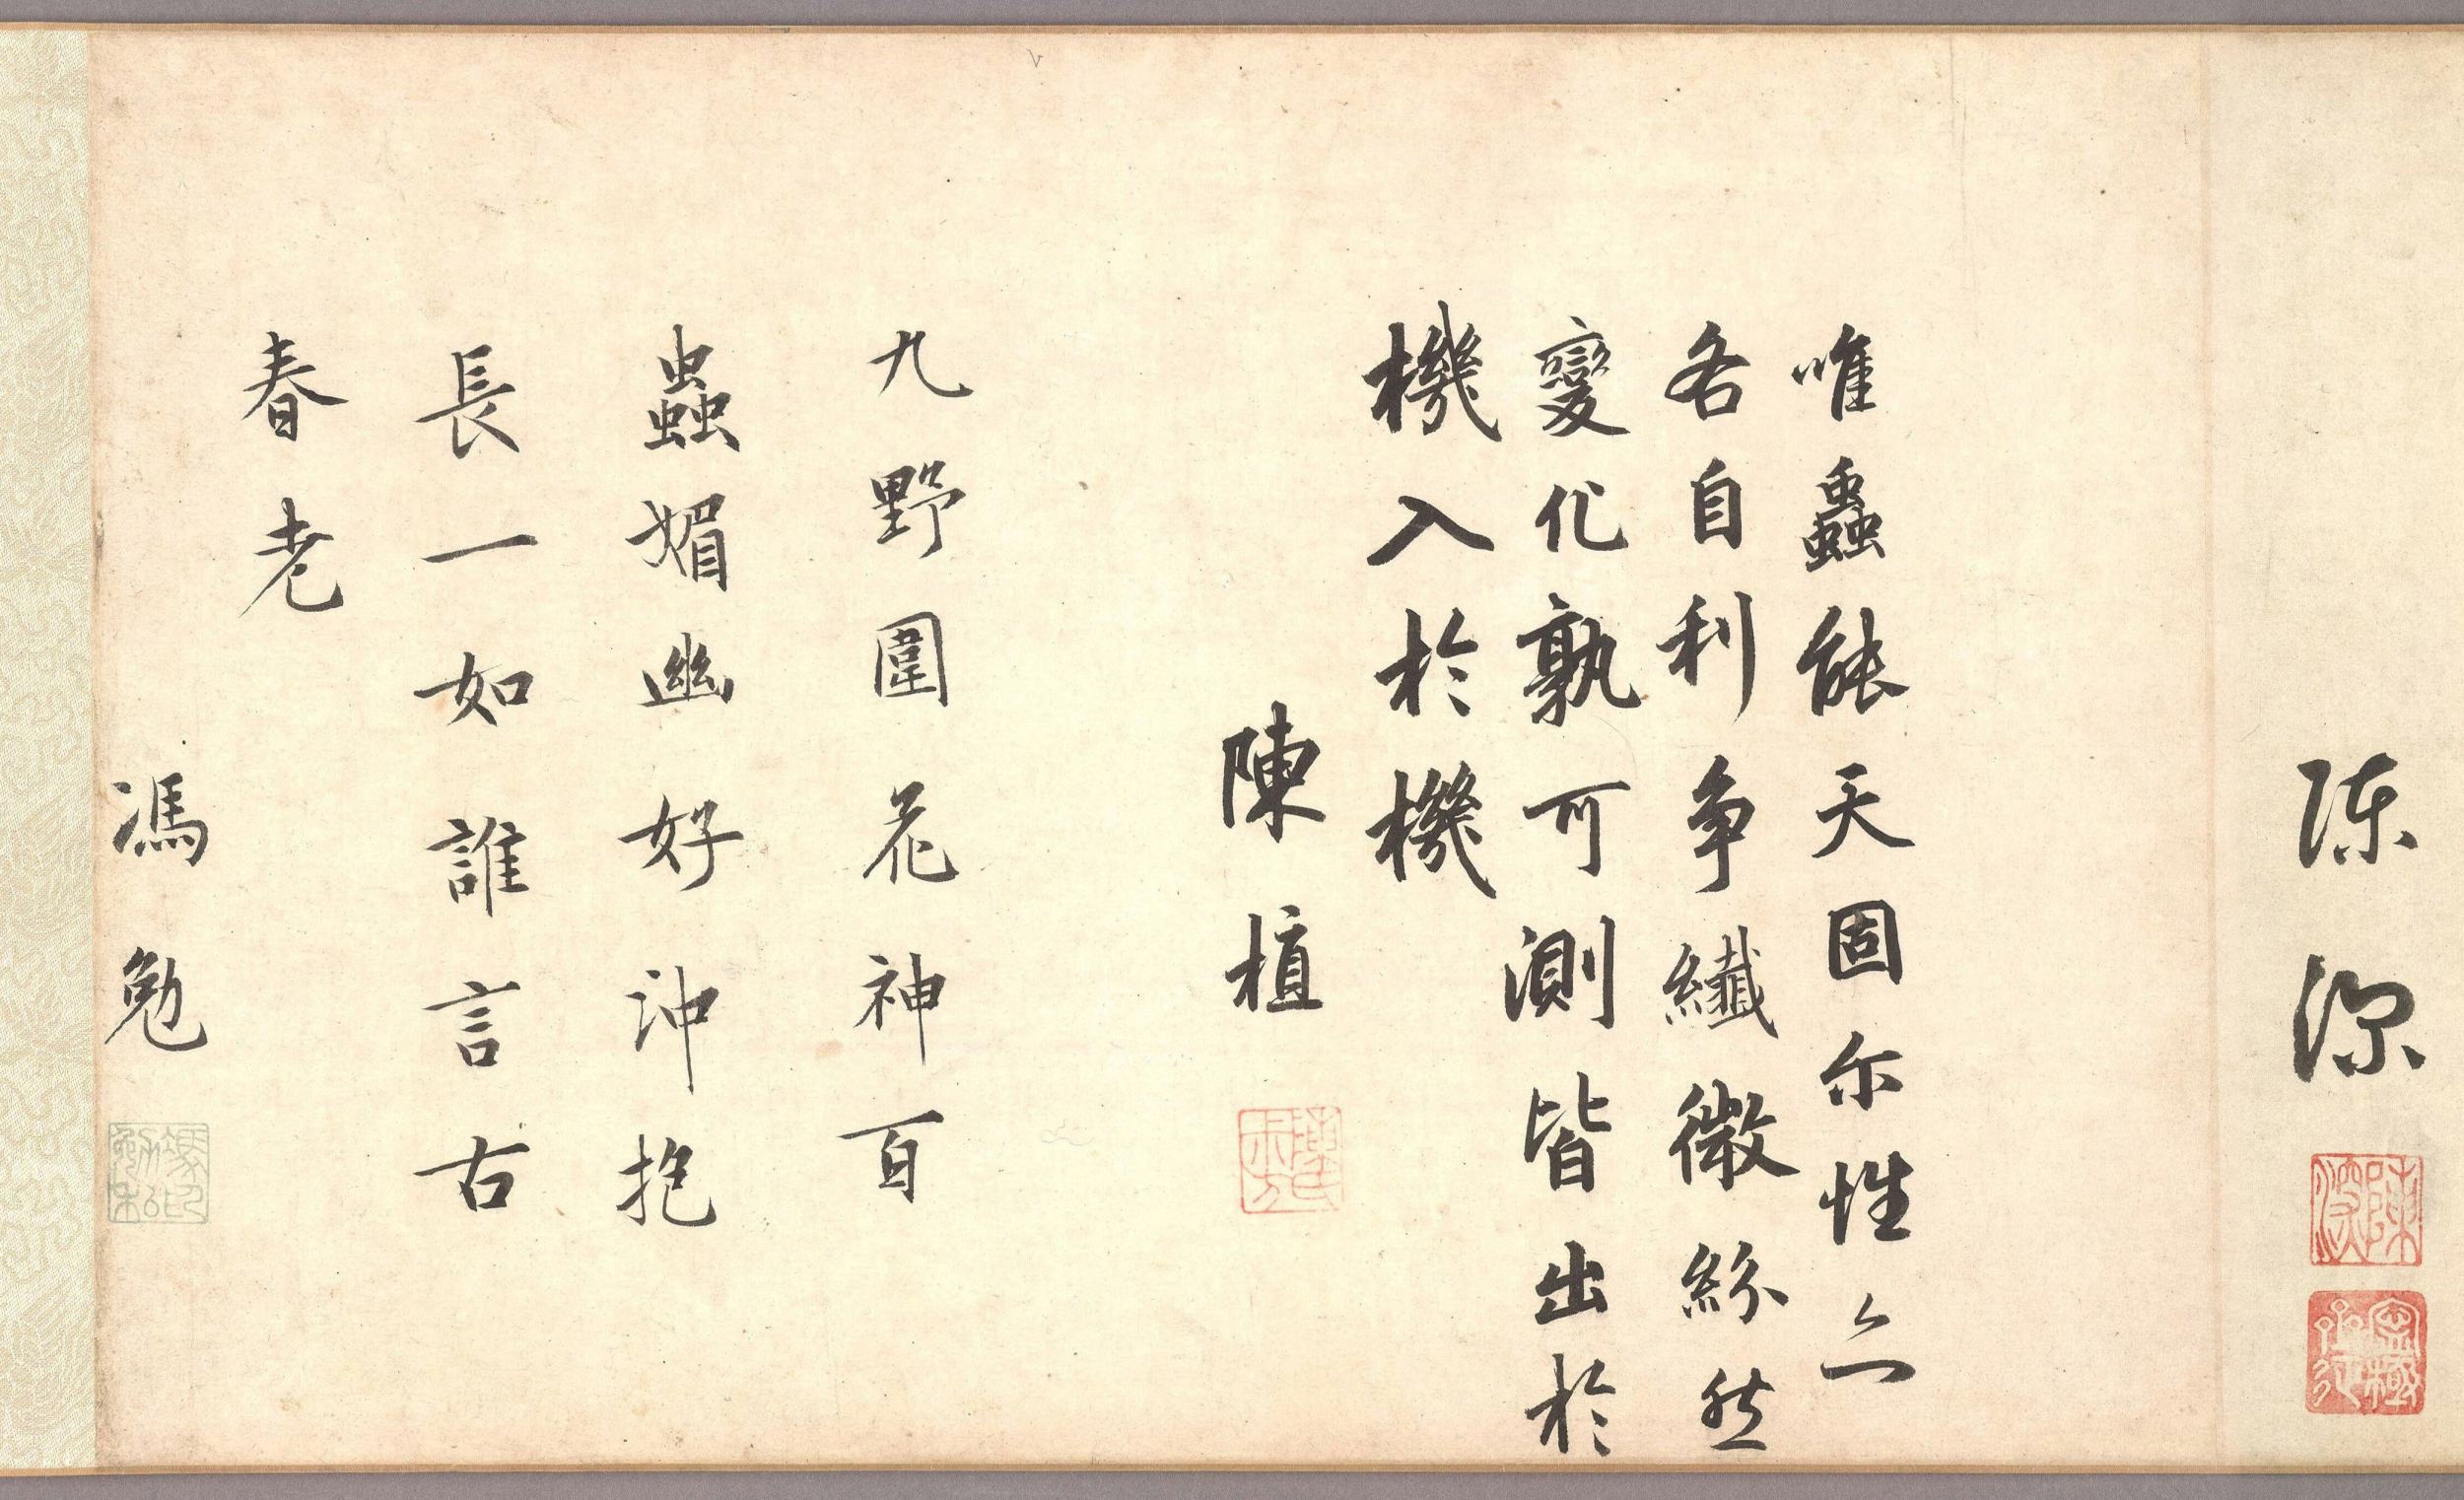 陈深
唯蟲能天固尔性亼
各自利爭纖微紛然
變化孰可測皆出於
機入於機
陳植
九野圍花神百
蟲媚幽好沖抱
長一如誰言古
春老
馮勉